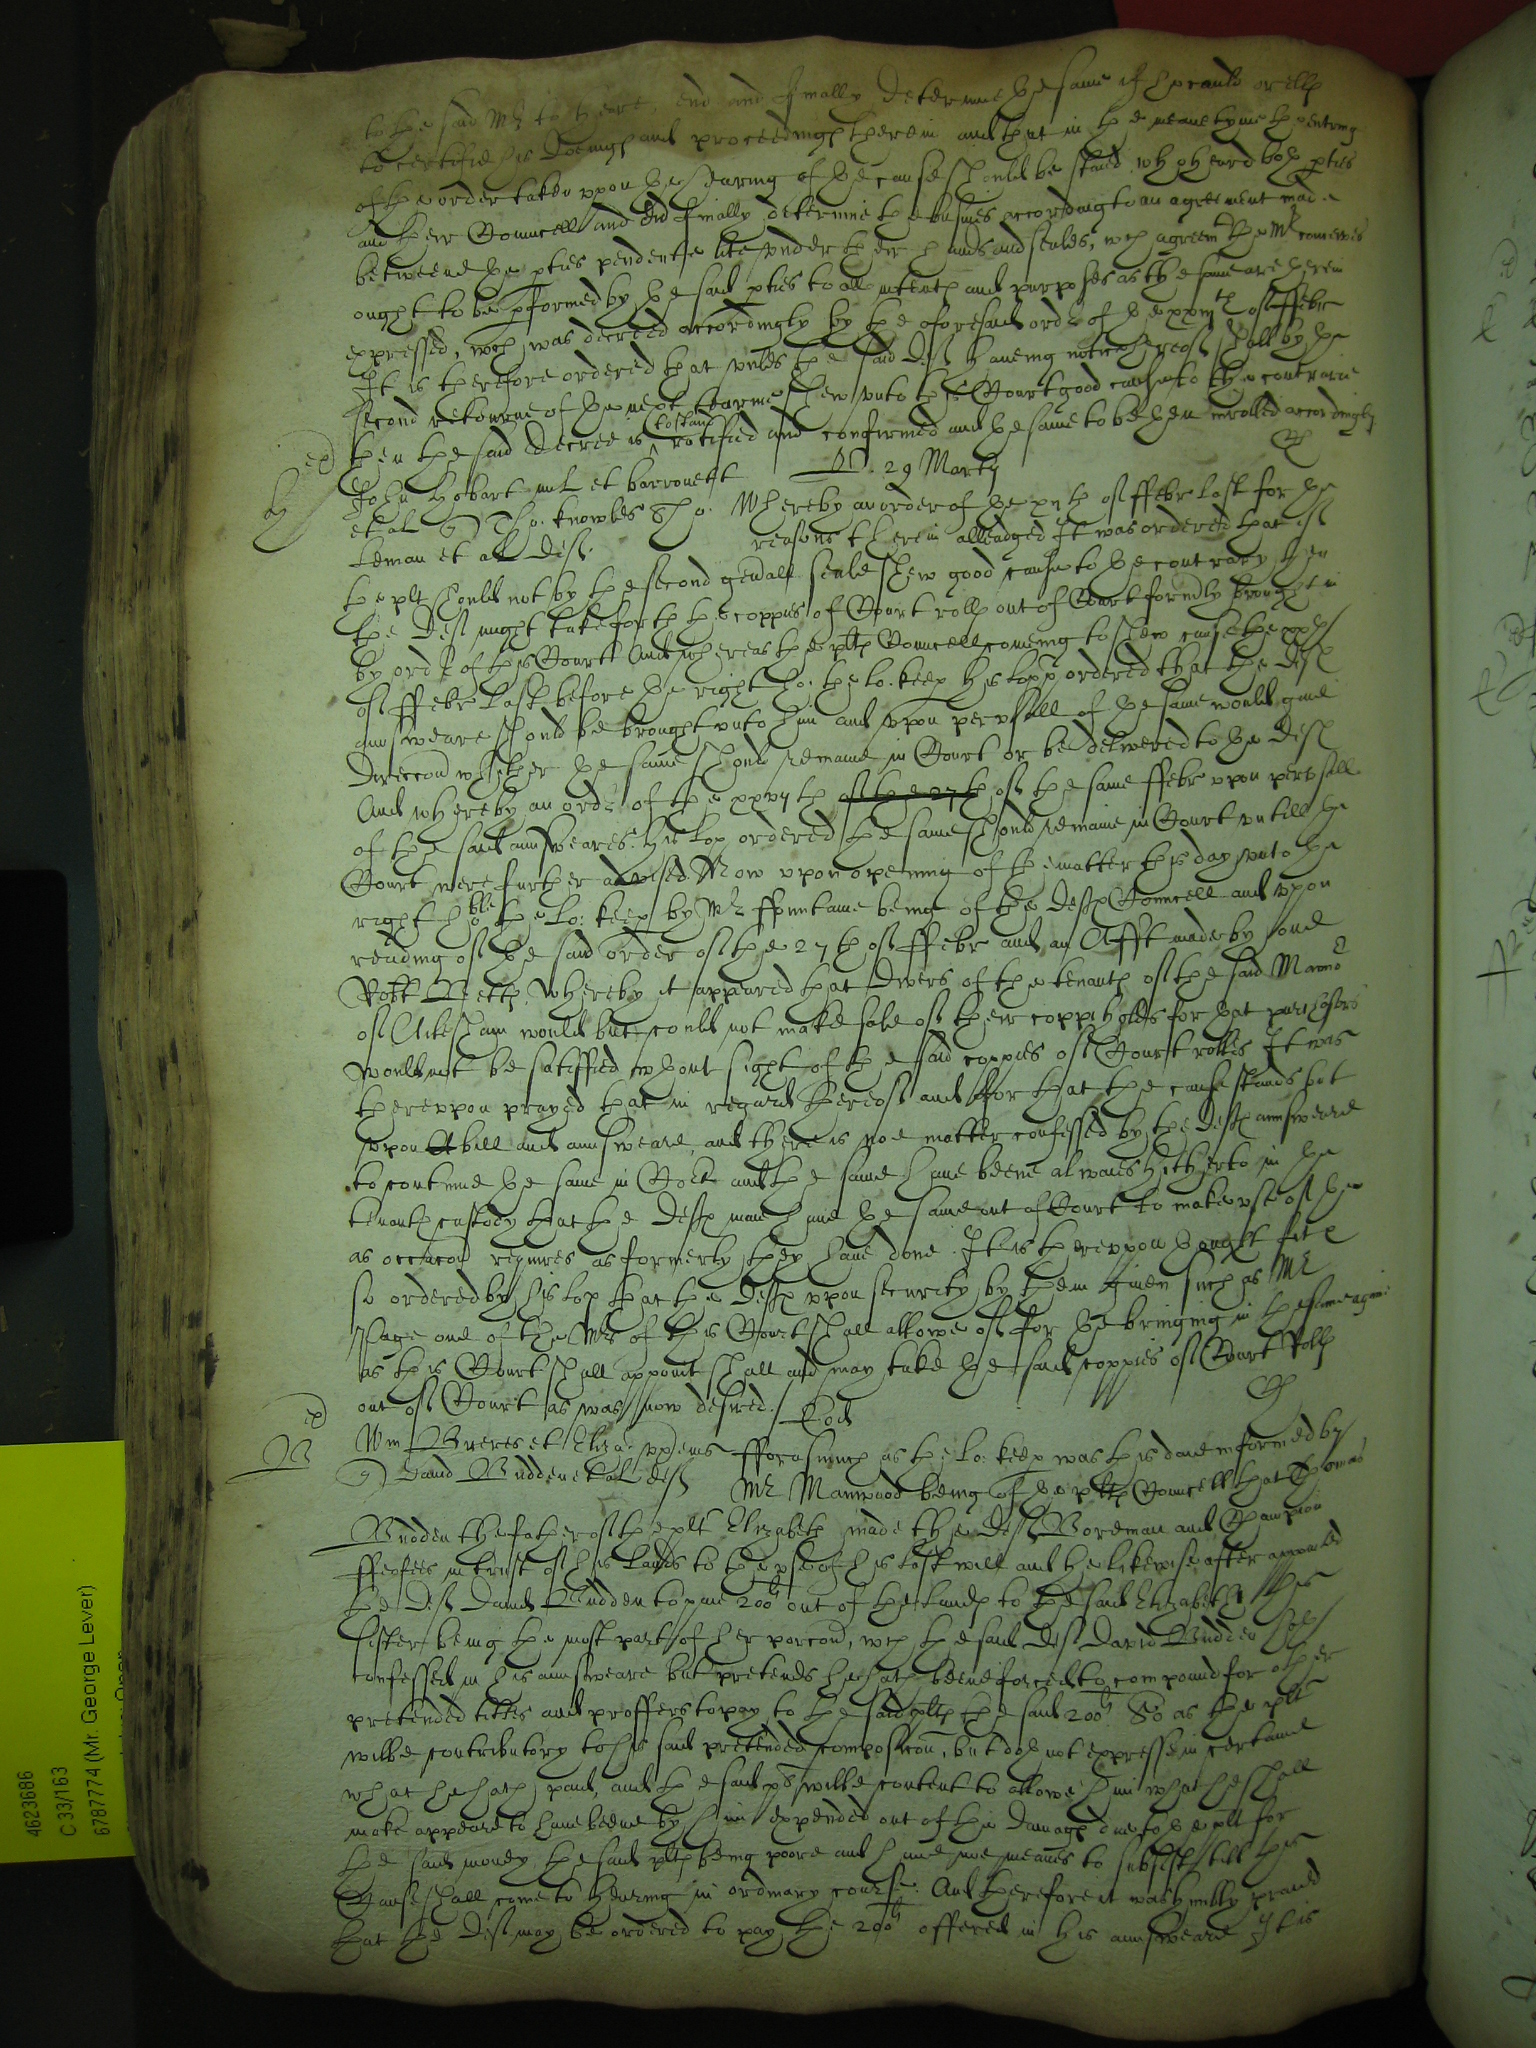 to the said Mr to heare, end and finally determine the same if he could or ells
to certifie his doeings and proceedings therein and that in the meane tyme thentring
of the order taken upon the hearing of the cause should be staied who heard both pties
and their Councell and did finally determine the busines according to an agreement made
betweene the pties pendente lite under their hands and seales, wch agreemt the Mr conceives
ought to be pformed by the said pties to all intents and purposes as the same are therein
expressed, wch was decreed accordingly by the aforesaid ordr of the of ffebr
It is therefore ordered that unles the said deft haveing notice hereof shall by the
second retourne of the next tearme shew unto this Court good cause to the contrarie
then the said decree is to stand ratified and confirmed and the same to be then inrolled accordingly
ex
John Hobart mil et barronett
D. 29 Martij
et al q Tho. Knowles
Leman et al Deft.
Whereby an order of the of ffebr last for the
reasons therein alleadged It was ordered that if
the plt should not by the second genall seale shew good cause to the contrary then
the Deft might take forth the coppies of Court rolls out of Court formerly brought in
by ordr of this Court And whereas the plts Councell comeing to shew cause the
of ffebr last before the right ho: the lo: keep his lopp ordered that the Defts
aunsweare should be brought unto him and upon perusall of the same would give
direccon whether the same should remaine in Court or be delivered to the Defts
And whereby an ordr of the xxvijth of the 27th of the same ffebr upon perusall
of the said aunsweares his lop ordered the same should remaine in Court untill the
Court were further advised Now upon opening of the matter this day unto the
right hoble the lo: keep by Mr ffountaine being of the Defts Councell and upon
reading of the said order of the 27th of ffebr and an Afft made by one
Robt Betts, whereby it appeared that divers of the tenants of the said Mannor
of would but could not make sale of their coppiholds for that purchasers
would not be satisfied without sight of the said coppies of Court rolles It was
thereupon prayed that in regard thereof and for that the cause stands but
upon bill and aunsweare, and there is noe matter confessed by the Defts aunsweare
to continue the same in Cort and the same have beene alwaies hitherto in the
tenants custody that the Defts maie have the same out of Court to make use of the
as occacon requires as formerly they have done. It is thereupon thought fit &
so ordered by his lop that the Defts upon security by them given such as Mr
Page one of the Mrs of this Court shall allowe of for the bringing in the same againe
as this Court shall appoint shall and may take the said coppies of Court Rolls
out of Court as was now desired.
ex
Eod
Wm Bueres et Eliza: ux quer
q David Budden et al defts
fforasmuch as the lo: keep was this daie informed by
Mr Manwood being of the plts Councell that Thomas
Budden the father of the plt Elizabeth made the Defts Boreman and Champion
ffeoffees in trust of his lands to the use of his last will and he likewise after appointed
the Deft David Budden to paie 200li out of the lands to the said Elizabeth his
sister being the most part of her porcon, wch the said Deft David Budden hath
confessed in his aunsweare but pretends he hath beene forced to compound for other
pretended titles and proffers to pay to the said plts the said 200li So as the plts
wilbe contributory to his said pretended composicon, but doth not expresse in certaine
what he hath paid, and the said plts wilbe content to allowe him what he shall
make appeare to have beene by him expended out of the damags due to the plt for
the said money the said plts being poore and have noe meanes to subsist till the
Cause shall come to hearing in ordinary course. And therefore it was humbly praied
that the Deft may be ordered to pay the 200li offered in his aunsweare It is
4623686
C 33/163
6787774 (Mr. George Lever)